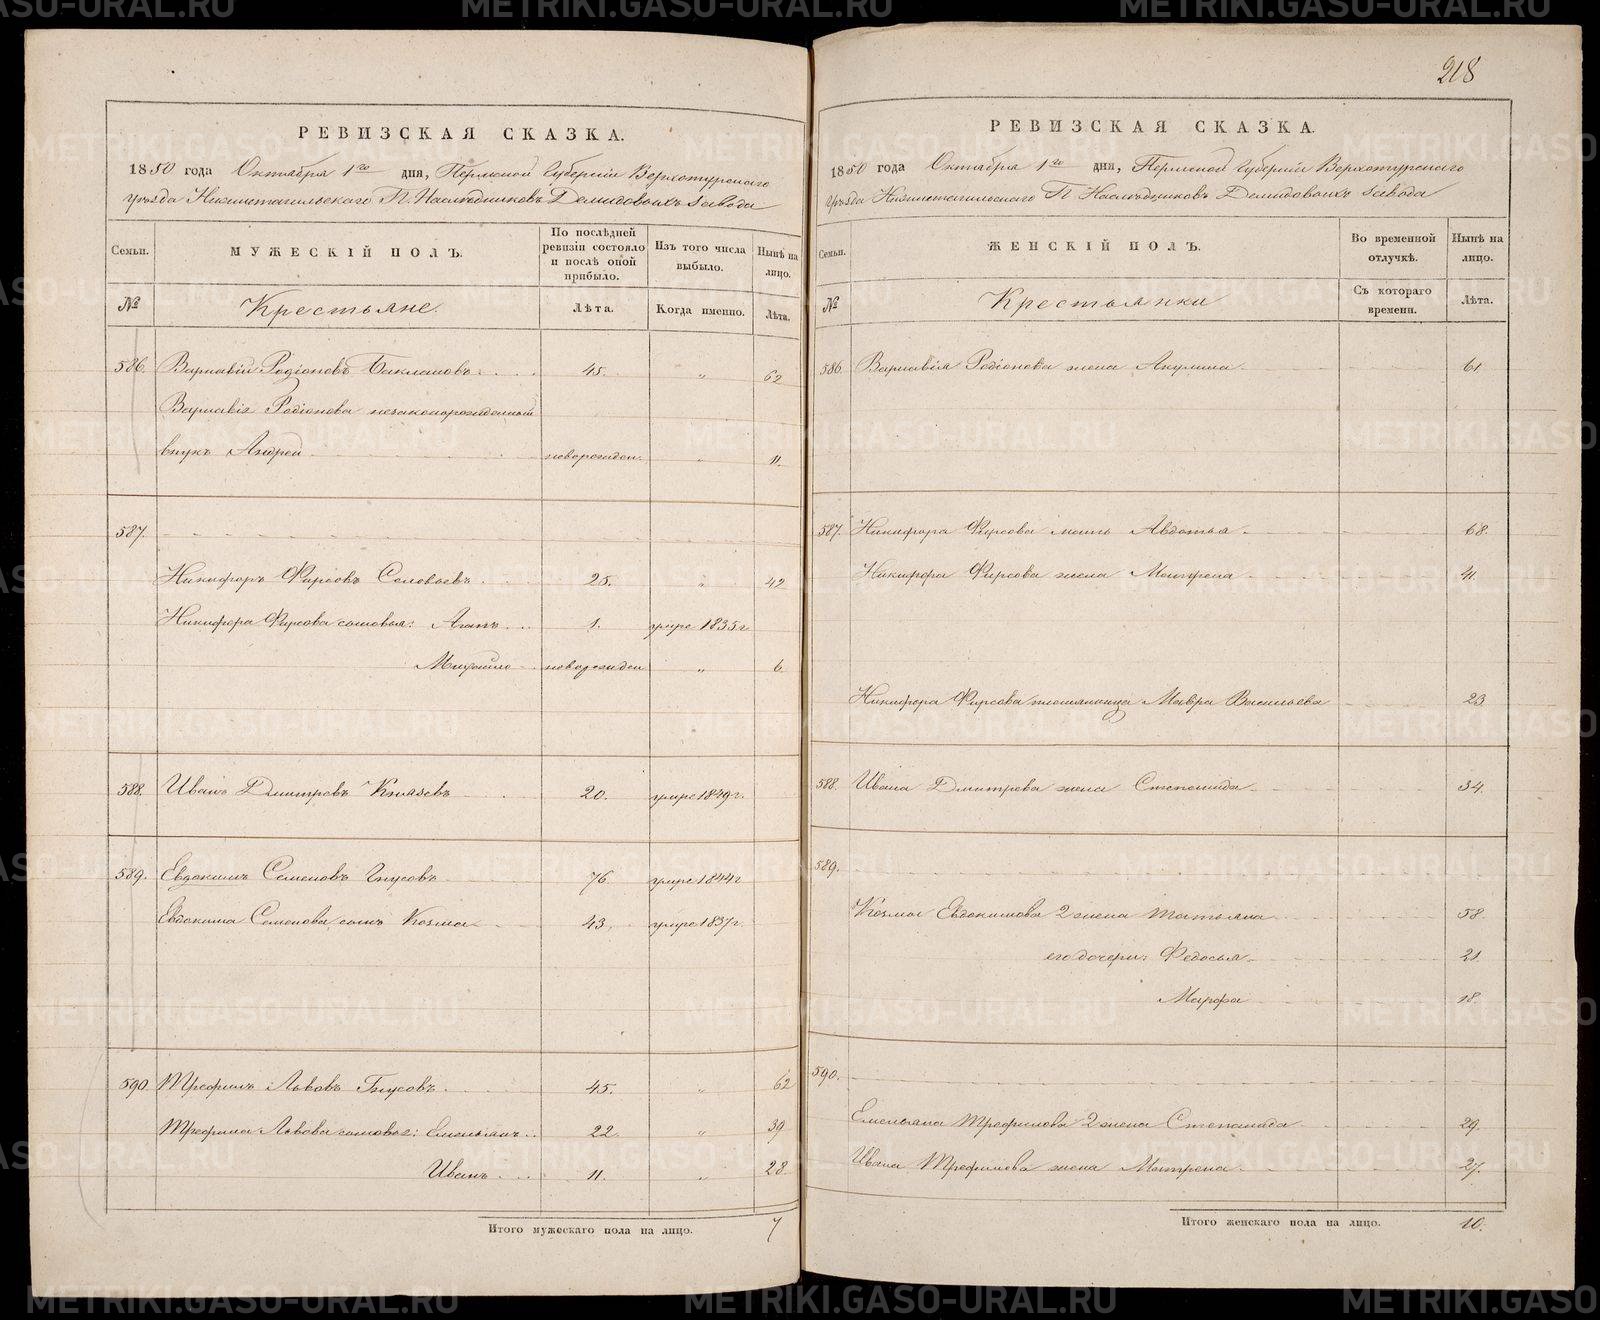 218
РЕВИЗСКАЯ СКАЗКА.
1850 года Октября 1го дня, Пермской Губернiи Верхотурскаго
Уѣзда Нижнетагильскаго П. Наслѣдниковъ Демидовыхъ завода
Семьи.
МУЖЕСКIЙ ПОЛЪ.
По послѣдней ревизiи состояло и послѣ оной прибыло.
Изъ того числа выбыло.
Нынѣ на лицо.
№
Крестьяне.
Лѣта.
Когда именно.
Лѣта.
586. Варнавiй Родiоновъ Баклановъ. 45. " 62
Варнавiя Родiонова незаконорожденный
внукъ Андрей новорожден. " 11.
587.
Никифоръ Фирсовъ Соловьевъ. 25. " 42
Никифора Фирсова сыновья: Агапъ 1. умре 1835 г
Михайло новорожден " 6.
588. Иванъ Дмитревъ Князевъ 20. умре 1849 г.
589. Евдокимъ Семеновъ Гнусовъ 76. умре 1844 г
Евдокима Семенова сынъ Козма 43. умре 1837 г.
590. Трефилъ Львовъ Гнусовъ. 45. " 62
Трефила Львова сыновья: Емельянъ 22. " 39
Иванъ 11. " 28
Итого мужескаго пола на лицо. 7
РЕВИЗСКАЯ СКАЗКА.
1850 года Октября 1го дня, Пермской Губернiи Верхотурскаго
Уѣзда Нижнетагильскаго П Наслѣдниковъ Демидовыхъ завода
Семьи.
ЖЕНСКIЙ ПОЛЪ.
Во временной отлучкѣ.
Нынѣ на лицо.
№
Крестьянки
Съ котораго времени.
Лѣта.
586. Варнавiя Родiонова жена Акулина. 61.
587. Никифора Фирсова мать Авдотья 68.
Никифора Фирсова жена Матрена 41.
Никифора Фирсова Мавра Васильева 23
588. Ивана Дмитрева жена Степанида. 34.
589.
Козмы Евдокимова 2 жена Татьяна 58.
его дочери: Федосья 21.
Марфа 18.
590.
Емельяна Трефилова 2 жена Степанида 29.
Ивана Трефилова жена Матрена 27.
Итого женскаго пола на лицо. 10.
METRIKI.GASO-URAL.RU